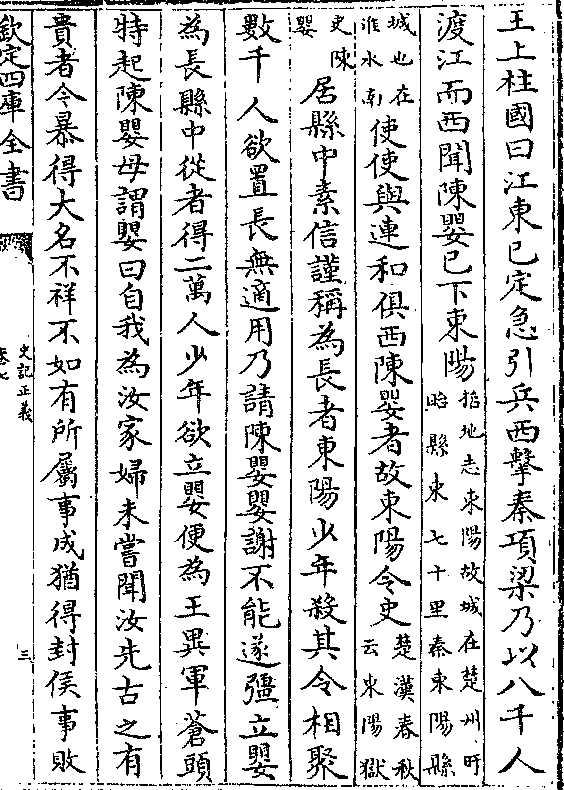 王上柱國曰江東已定急引兵西擊秦項梁乃以八千人
渡江而西聞陳嬰已下東陽括地志東陽故城在楚州盱
眙縣東七十里秦東陽縣
城也在
淮水南使使與連和俱西陳嬰者故東陽令史楚漢春秋
云東陽獄
史陳
嬰居縣中素信謹稱為長者東陽少年殺其令相聚
數千人欲置長無適用乃請陳嬰嬰謝不能遂彊立嬰
為長縣中從者得二萬人少年欲立嬰便為王異軍蒼頭
特起陳嬰母謂嬰曰自我為汝家婦未嘗聞汝先古之有
貴者今暴得大名不祥不如有所屬事成猶得封侯事敗
欽定四庫全書
史記正義
卷七
三